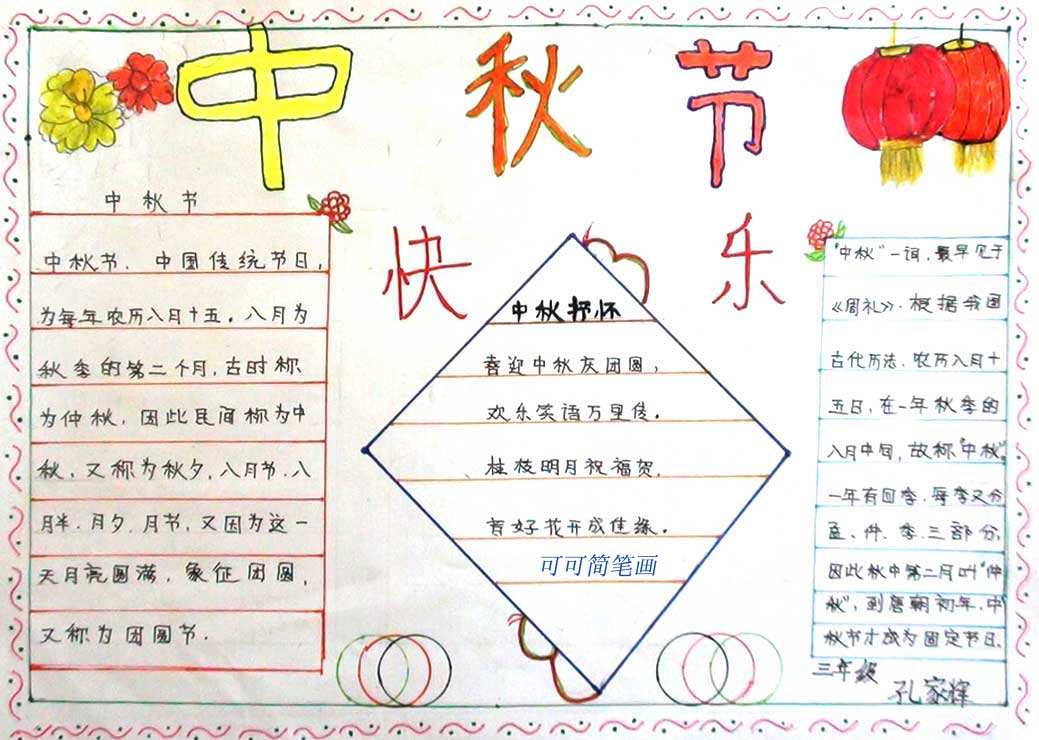 中秋节
快乐
中秋节
中秋节，中国传统节日，
为每年农历八月十五，八月为
秋季的第二个月，古时称
为仲秋，因此民间称为中
秋，又称为秋夕，八月节、八
月半、月夕、月节，又因为这一
天月亮圆满，象征团圆，
又称为团圆节．
中秋抒怀
喜迎中秋庆团圆，
欢乐笑语万里传。
桂枝明月祝福贺，
育好花开成佳缘。
可可简笔画
"中秋"一词，最早见于
《周礼》．根据我国
古代历法，农历八月十
五日，在一年秋季的
八月中旬，故称"中秋"。
一年有四季，每季又分
孟、仲、季三部分，
因此秋中第二月叫"仲
秋"，到唐朝初年，中
秋节才成为固定节日．
三年级
孔家辉